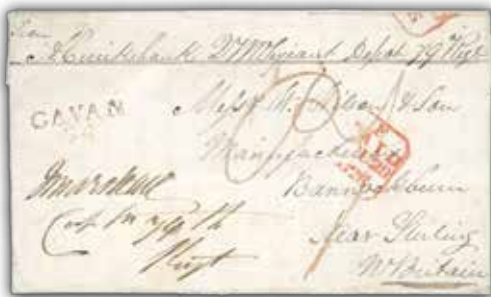 From
A Cruikshank Qr Mr Serjeant Depot 79 Regt
CAVAN
Messrs W. Wilson & Son
Manufacturers
PAID
Bannockburn
Near Stirling
N Britain
79th
Regt